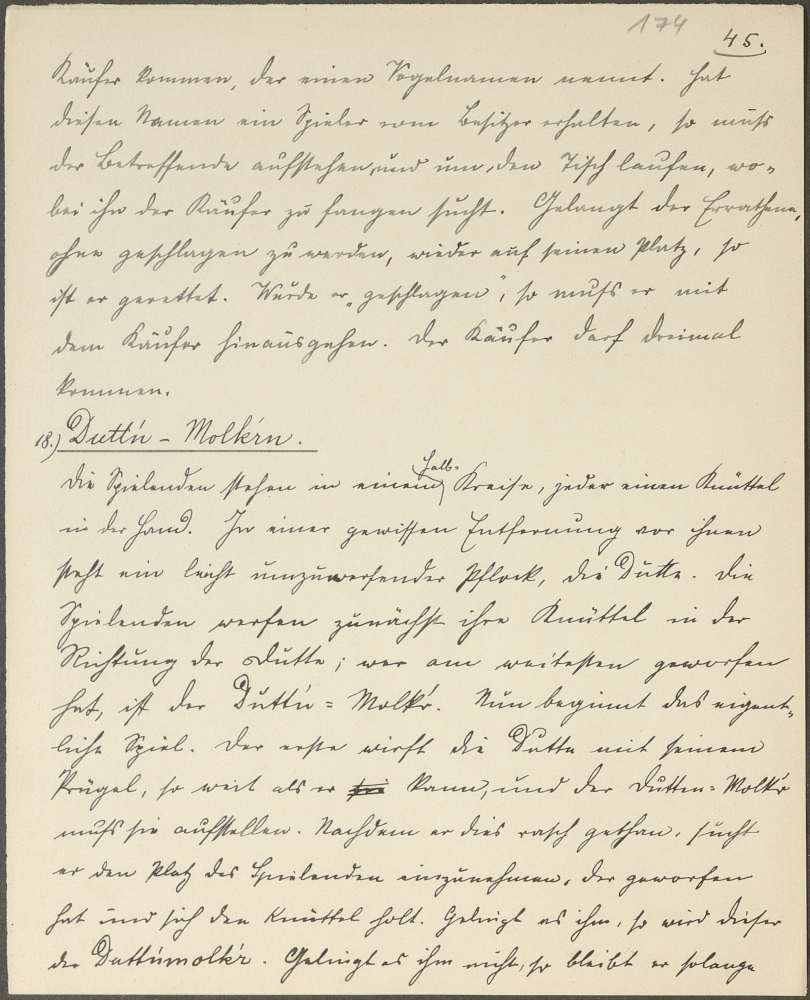 174
45.
Käufer kommen, der einen Vogelnamen nennt. Hat
diesen Namen ein Spieler vom Besitzer erhalten, so muß
der Betreffende aufstehen und um den Tisch laufen, wo-
bei ihn der Käufer zu fangen sucht. Gelangt der Errathene,
ohne geschlagen zu werden, wieder auf seinen Platz, so
ist er gerettet. Wurde er „geschlagen“, so muß er mit
dem Käufer hinausgehen. Der Käufer darf dreimal
kommen.
18.) Duttń - Molkŕn.
Die Spielenden stehen in einem Halb-Kreise, jeder einen Knüttel
in der Hand. In einer gewissen Entfernung vor ihnen
steht ein leicht umzuwerfender Pflock, die Dutte. Die
Spielenden werfen zunächst ihre Knüttel in der
Richtung der Dutte; wer am weitesten geworfen
hat, ist der Duttń = Molkŕ. Nun beginnt das eigent-
liche Spiel. Der erste wirft die Dutte mit seinem
Prügel, so weit als er kann, und der Dutten = Molkŕ
muß sie aufstellen. Nachdem er dies rasch gethan, sucht
er den Platz des Spielenden einzunehmen, der geworfen
hat und sich den Knüttel holt. Gelingt es ihm, so wird dieser
der Duttńmolkŕ. Gelingt es ihm nicht, so bleibt er solange